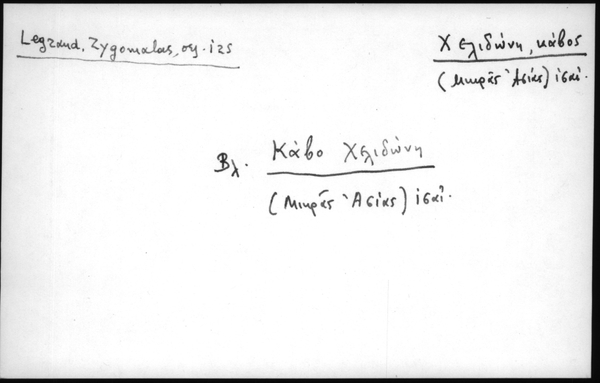 Legrand, Zygomalas, σς. 125
Χελιδώνη, κάβος
(Μικρᾶς Ἀσίας) ἰσαἰ.
Βλ. Κάβο Χελιδώνη
(Μικρᾶς Ἀσίας) ἰσαἰ.